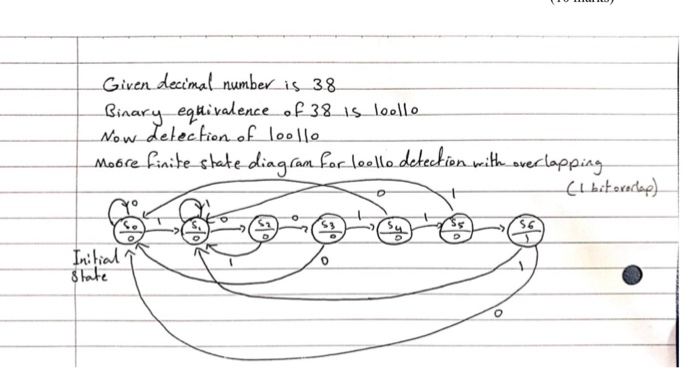 (10 marks)
Given decimal number is 38
Binary equivalence of 38 is 100110
Now detection of 100110
Moore finite state diagram for 100110 detection with overlapping
(1 bit overlap)
0 1 1 0 0 1 1 0 1
S0 0 S1 0 S2 0 S3 0 S4 0 S5 0 S6 1
Initial State
1 0 1
0